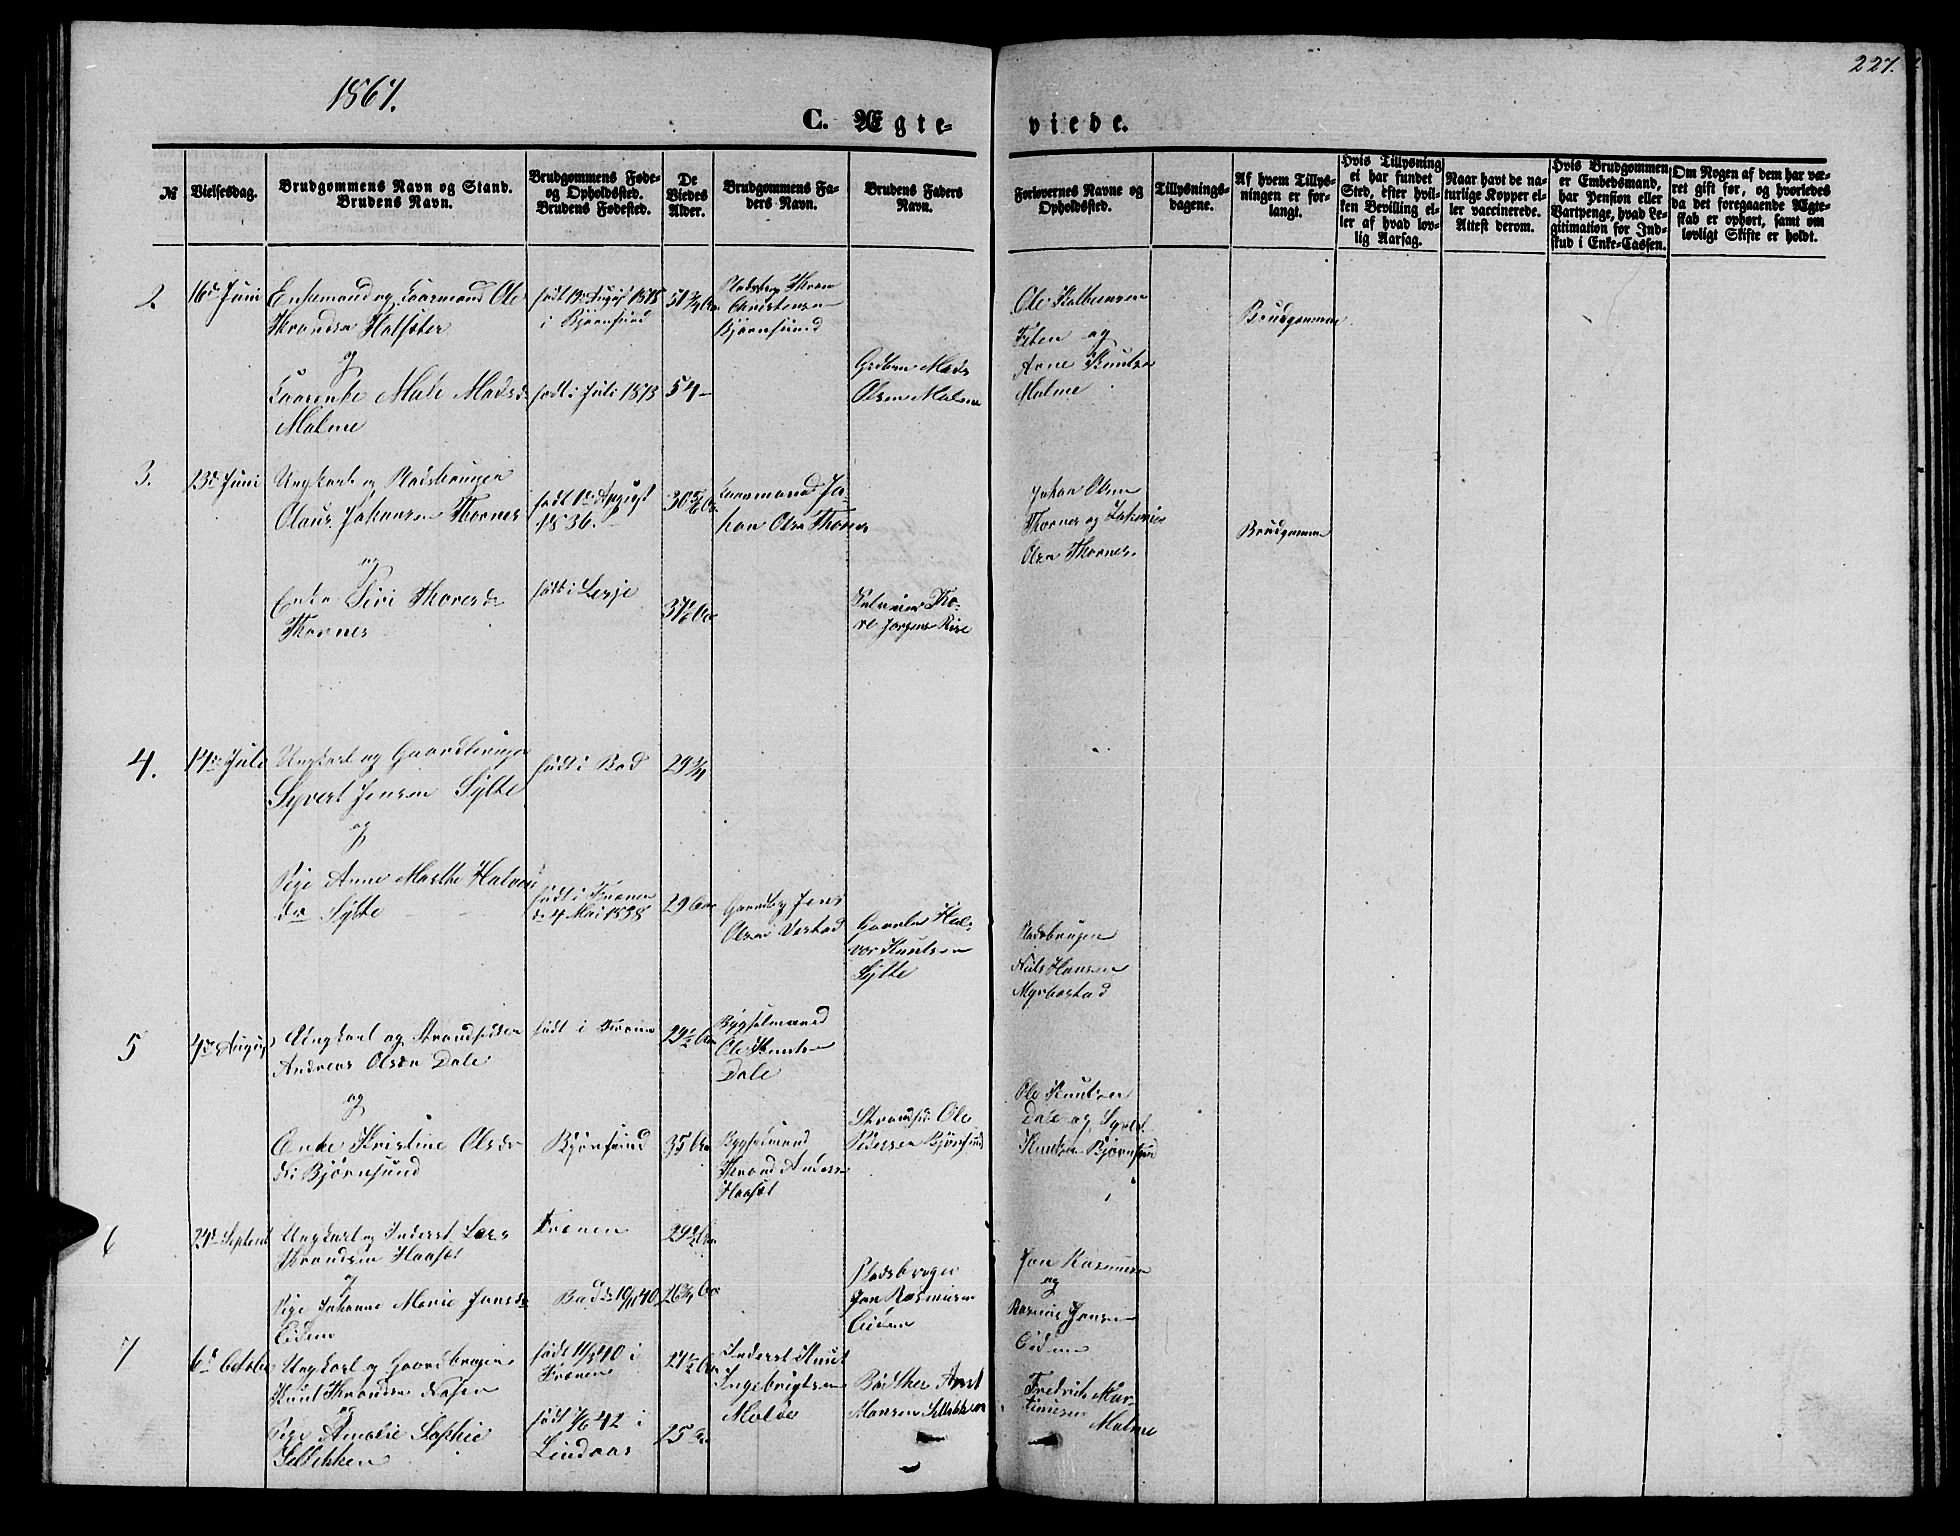 1867.
227.
C. Ægte-
viede.
№
Vielsesdag.
Brudgommens Navn og Stand.
Brudens Navn.
Brudgommens Føde-
og Opholdssted.
Brudens Fødested.
De
Viedes
Alder.
Brudgommens Fa-
ders Navn.
Brudens Faders
Navn.
Forlovernes Navne og
Opholdssted.
Tillysnings-
dagene.
Af hvem Tillys-
ningen er for-
langt.
Hvis Tillysning
ei har fundet
Sted, efter hvil-
ken Bevilling el-
ler af hvad lov-
lig Aarsag.
Naar havt de na-
turlige Kopper el-
ler vaccinerede.
Attest derom.
Hvis Brudgommen
er Embedsmand,
har Pension eller
Vartpenge, hvad Le-
gitimation for Ind-
skud i Enke-Cassen.
Om Nogen af dem har væ-
ret gift før, og hvorledes
da det foregaaende Ægte-
skab er ophørt, samt om
lovligt Skifte er holdt.
2
16de Juni
Enkemand og Kaarmand Ole
Thrandsen Halsæter
og
Kaarenke Mali Madsdr
Malme
født 19de August 1815
i Bjørnsund
født i Juli 1813
51 3/4 Aar
54 -
Christensen
Bjørnsund
Grdbrn Mads
Olsen Malme
Ole
og
Arne Knutsen
Malme
Brudgommen
3.
23de Juni
Ungkarl og Pladsbruger
Olaus Johansen Thornes
og
Enke Siri Thoresdr
Thornes
født 1ste August
1836.
født i Lesje
30 5/6 Aar
37 1/6 Aar
Kaarmand Jo-
han Olsen Thornes
Selveier Tho-
re Rise
Johan Olsen
Thornes og
Olsen Thornes
Brudgommen
4.
14de Juli
Ungkarl og Gaardbruger
Syvert Jensen Sylte
og
Pige Anne Marthe Halvors
dr Sylte
født i Bod
født i Frænen
d. 4 Mai 1838
29 3/4
29 Aar
Gaardbr Jens
Olsen
Hal-
vor Knutsen
Sylte
Pladsbruger
Niels Hansen
Myrbostad
5
4de August
Ungkarl og Strandsidder
Andreas Olsen Dale
og
Enke Kristine Olsdr
Bjørnsund
født i Frænen
Bjørnsund
29 1/2 Aar
35 Aar
Bygselmand
Ole Knutsen
Dale
Bygselmand
Thrond Anders
Haasæt
Strandsid. Ole
Pedersen Bjørnsund
Ole Knutsen
Dale og Syvert
Knutsen Bjørnsund
6
24de Septembr
Ungkarl og Inderst Lars
Throndsen Haasæt
og
Pige Johanne Marie Jonsdr
Eidem
Frænen
Bod 10/11 40
29 Aar
26 3/4 Aar
Pladsbruger
Jon Rasmusen
Eidem
Jon Rasmusen
og
Rasmus Jonsen
Eidem
7
6te October
Ungkarl og Gaardbruger
Knut Throndsen
og
Pige Amalie Sophie
Sellekken
født 11/3 40 i
Frænen
født 7/6 42 i
Lindaas
27 1/2 Aar
25 Aar
Inderst Knut
Ingebrigtsen
Molde
Bødker Arnt
Monsen Sellekken
Fredrik Mar-
tinusen
Malme